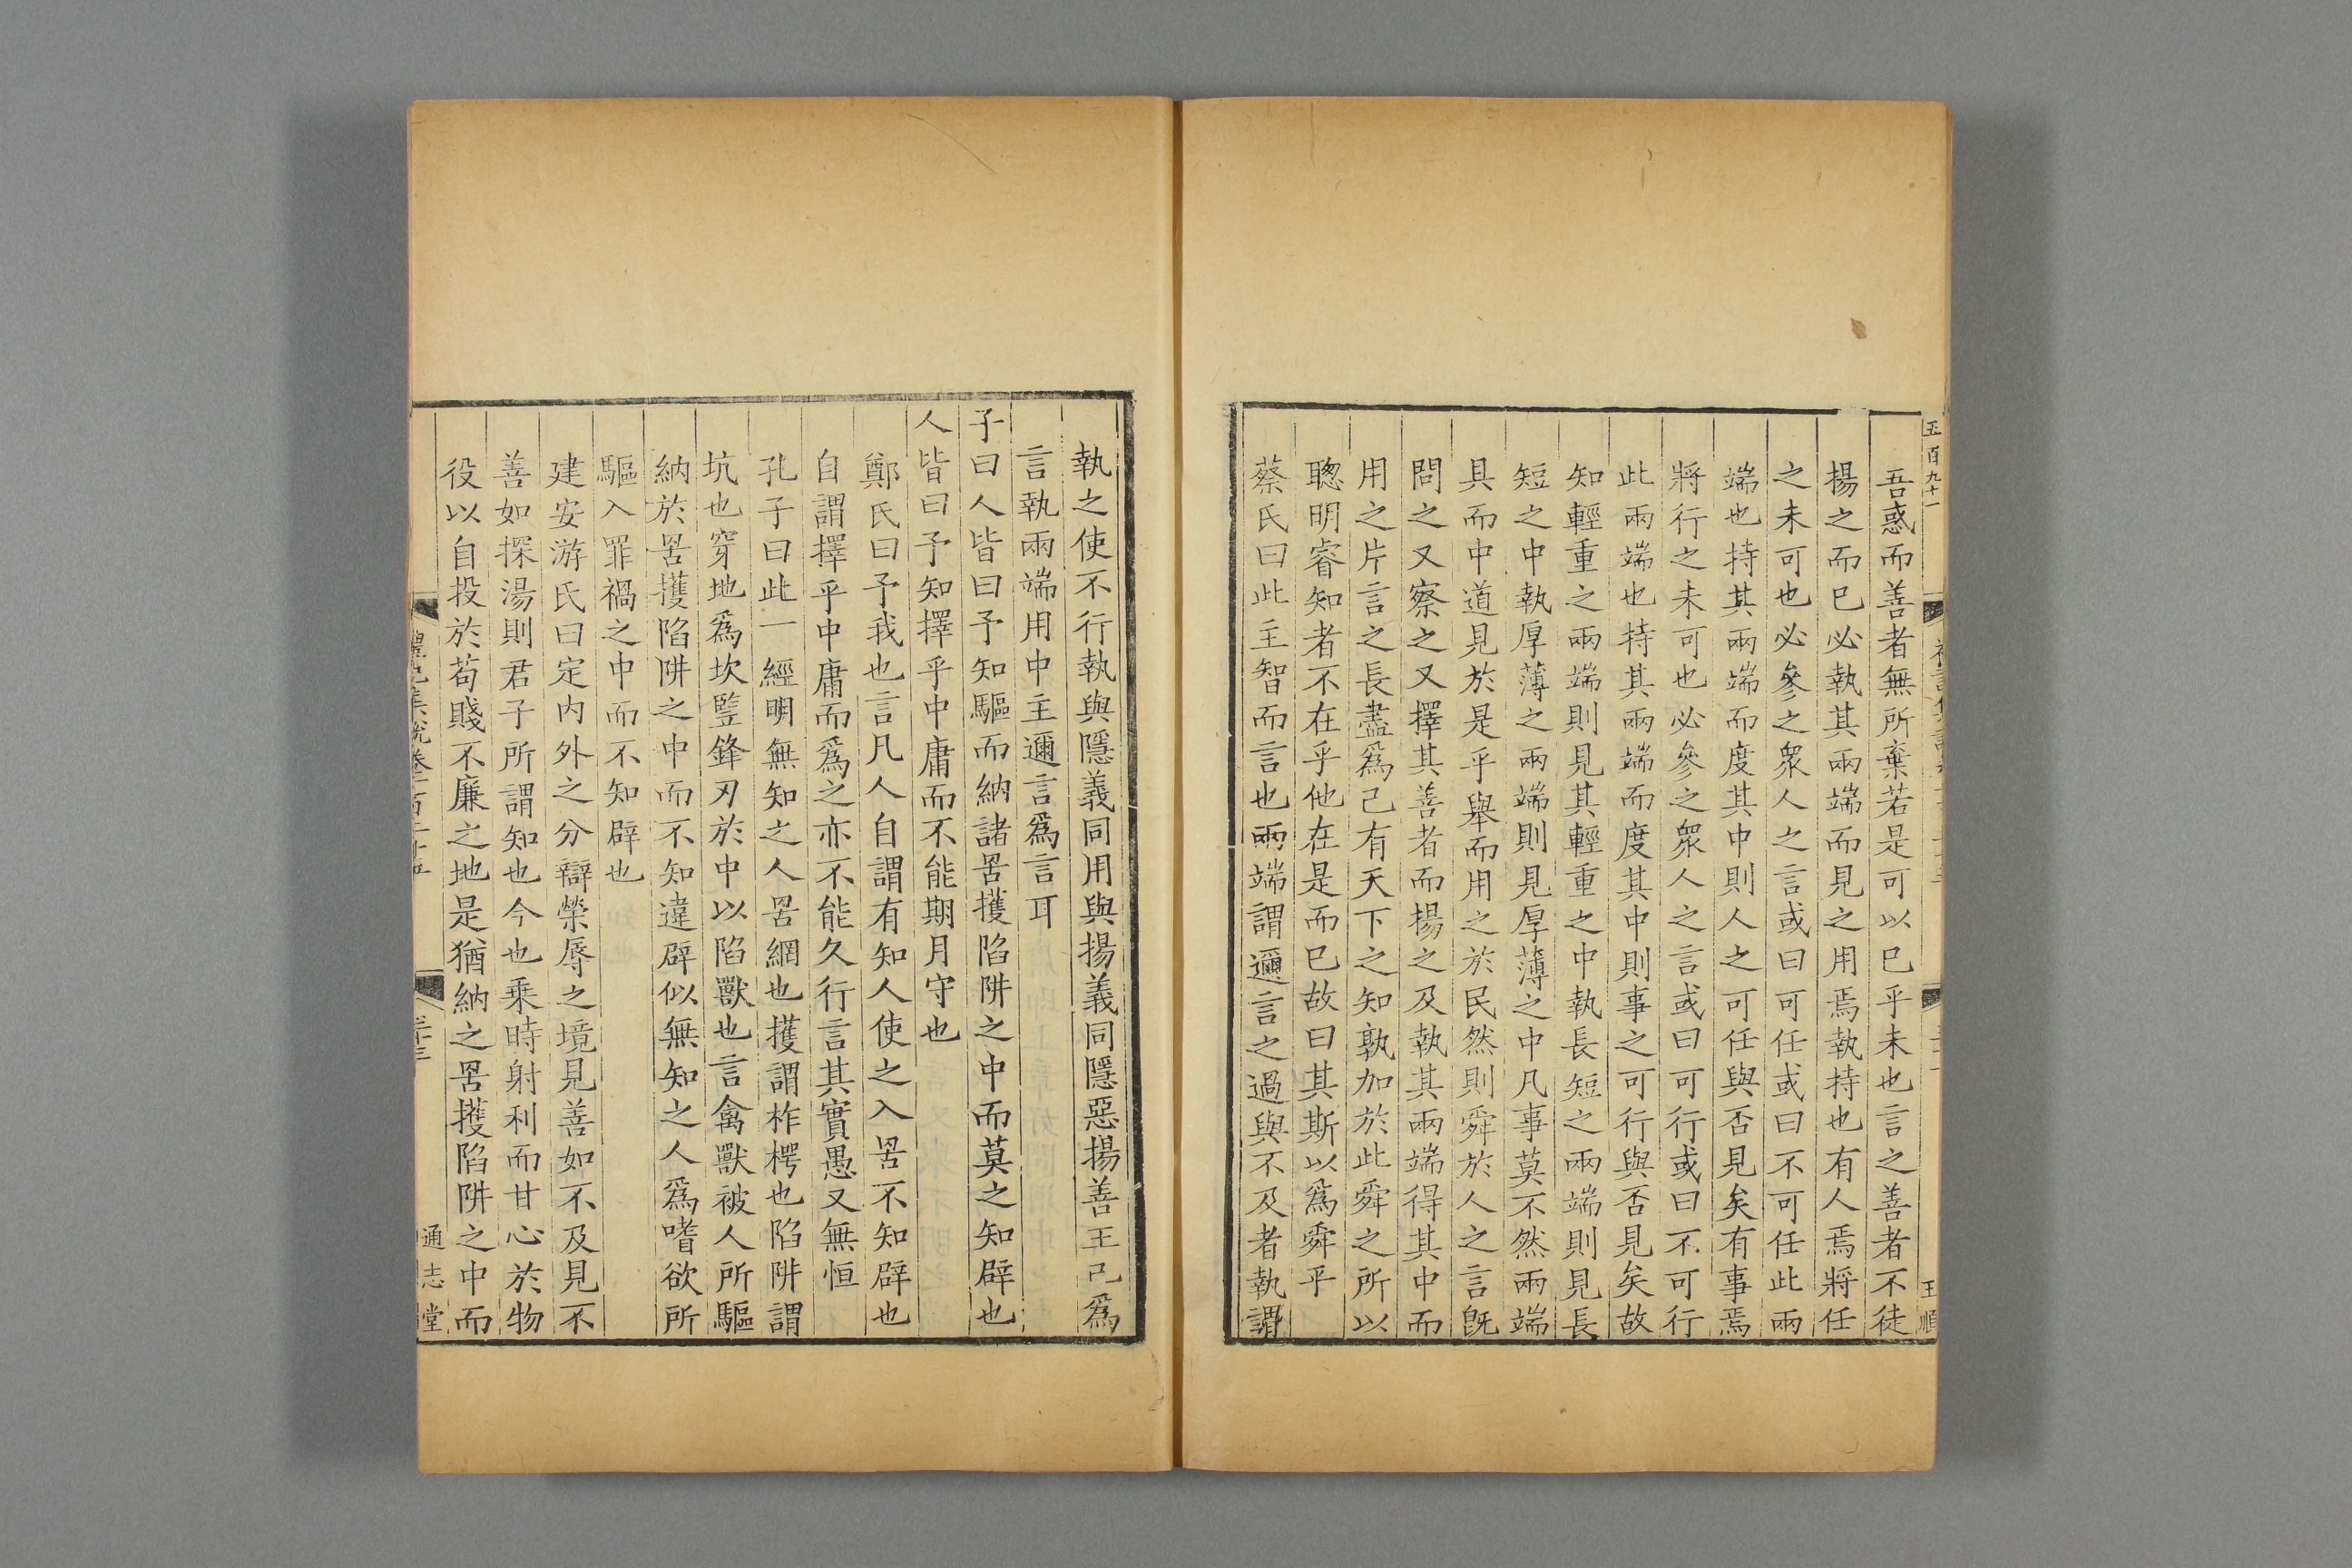 五百九十一
王順
吾惑而善者無所棄若是可以巳乎未也言之善者不徒
揚之而巳必執其兩端而見之用焉執持也有人焉將任
之未可也必參之衆人之言或曰可任或曰不可任此兩
端也持其兩端而度其中則人之可任與否見矣有事焉
將行之未可也必參之衆人之言或曰可行或曰不可行
此兩端也持其兩端而度其中則事之可行與否見矣故
知輕重之兩端則見其輕重之中執長短之兩端則見長
短之中執厚薄之兩端則見厚薄之中凡事莫不然兩端
具而中道見於是乎舉而用之於民然則舜於人之言旣
問之又察之又擇其善者而揚之及執其兩端得其中而
用之片言之長盡爲己有天下之知孰加於此舜之所以
聰明睿知者不在乎他在是而巳故曰其斯以爲舜乎
蔡氏曰此主智而言也兩端謂邇言之過與不及者執謂
執之使不行執與隱義同用與揚義同隱惡揚善主己爲
言執兩端用中主邇言爲言耳
子曰人皆曰予知驅而納諸罟擭陷阱之中而莫之知辟也
人皆曰予知擇乎中庸而不能期月守也
鄭氏曰予我也言凡人自謂有知人使之入罟不知辟也
自謂擇乎中庸而爲之亦不能久行言其實愚又無恒
孔子曰此一經明無知之人罟網也擭謂柞楞也陷阱謂
坑也穿地爲坎豎鋒刃於中以陷獸也言禽獸被人所驅
納於罟擭陷阱之中而不知違辟似無知之人爲嗜欲所
驅入罪禍之中而不知辟也
建安游氏曰定内外之分辯榮辱之境見善如不及見不
善如探湯則君子所謂知也今也乗時射利而甘心於物
役以自投於苟賤不廉之地是猶納之罟擭陷阱之中而
禮記集說卷一百二十五
三十三
通志堂